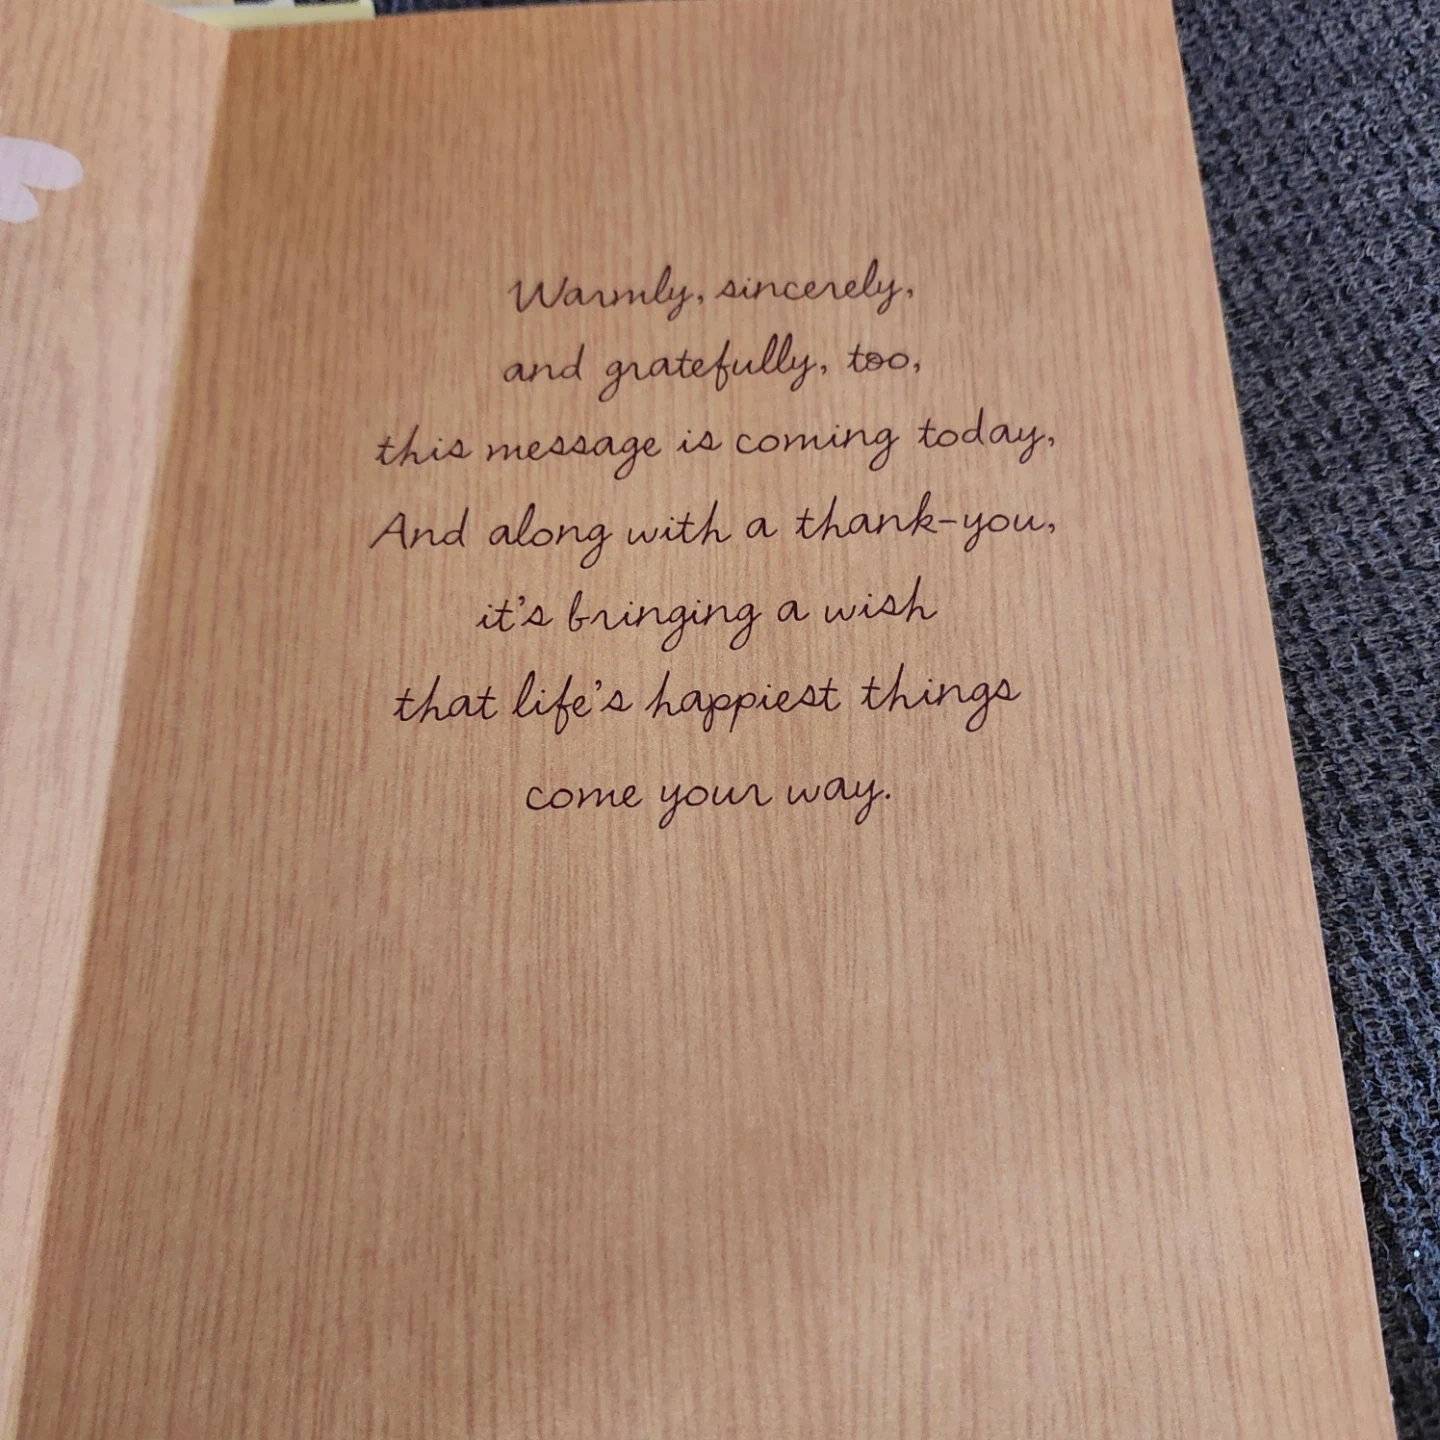 Warmly, sincerely,
and gratefully, too,
this message is coming today,
And along with a thank-you,
it's bringing a wish
that life's happiest things
come your way.